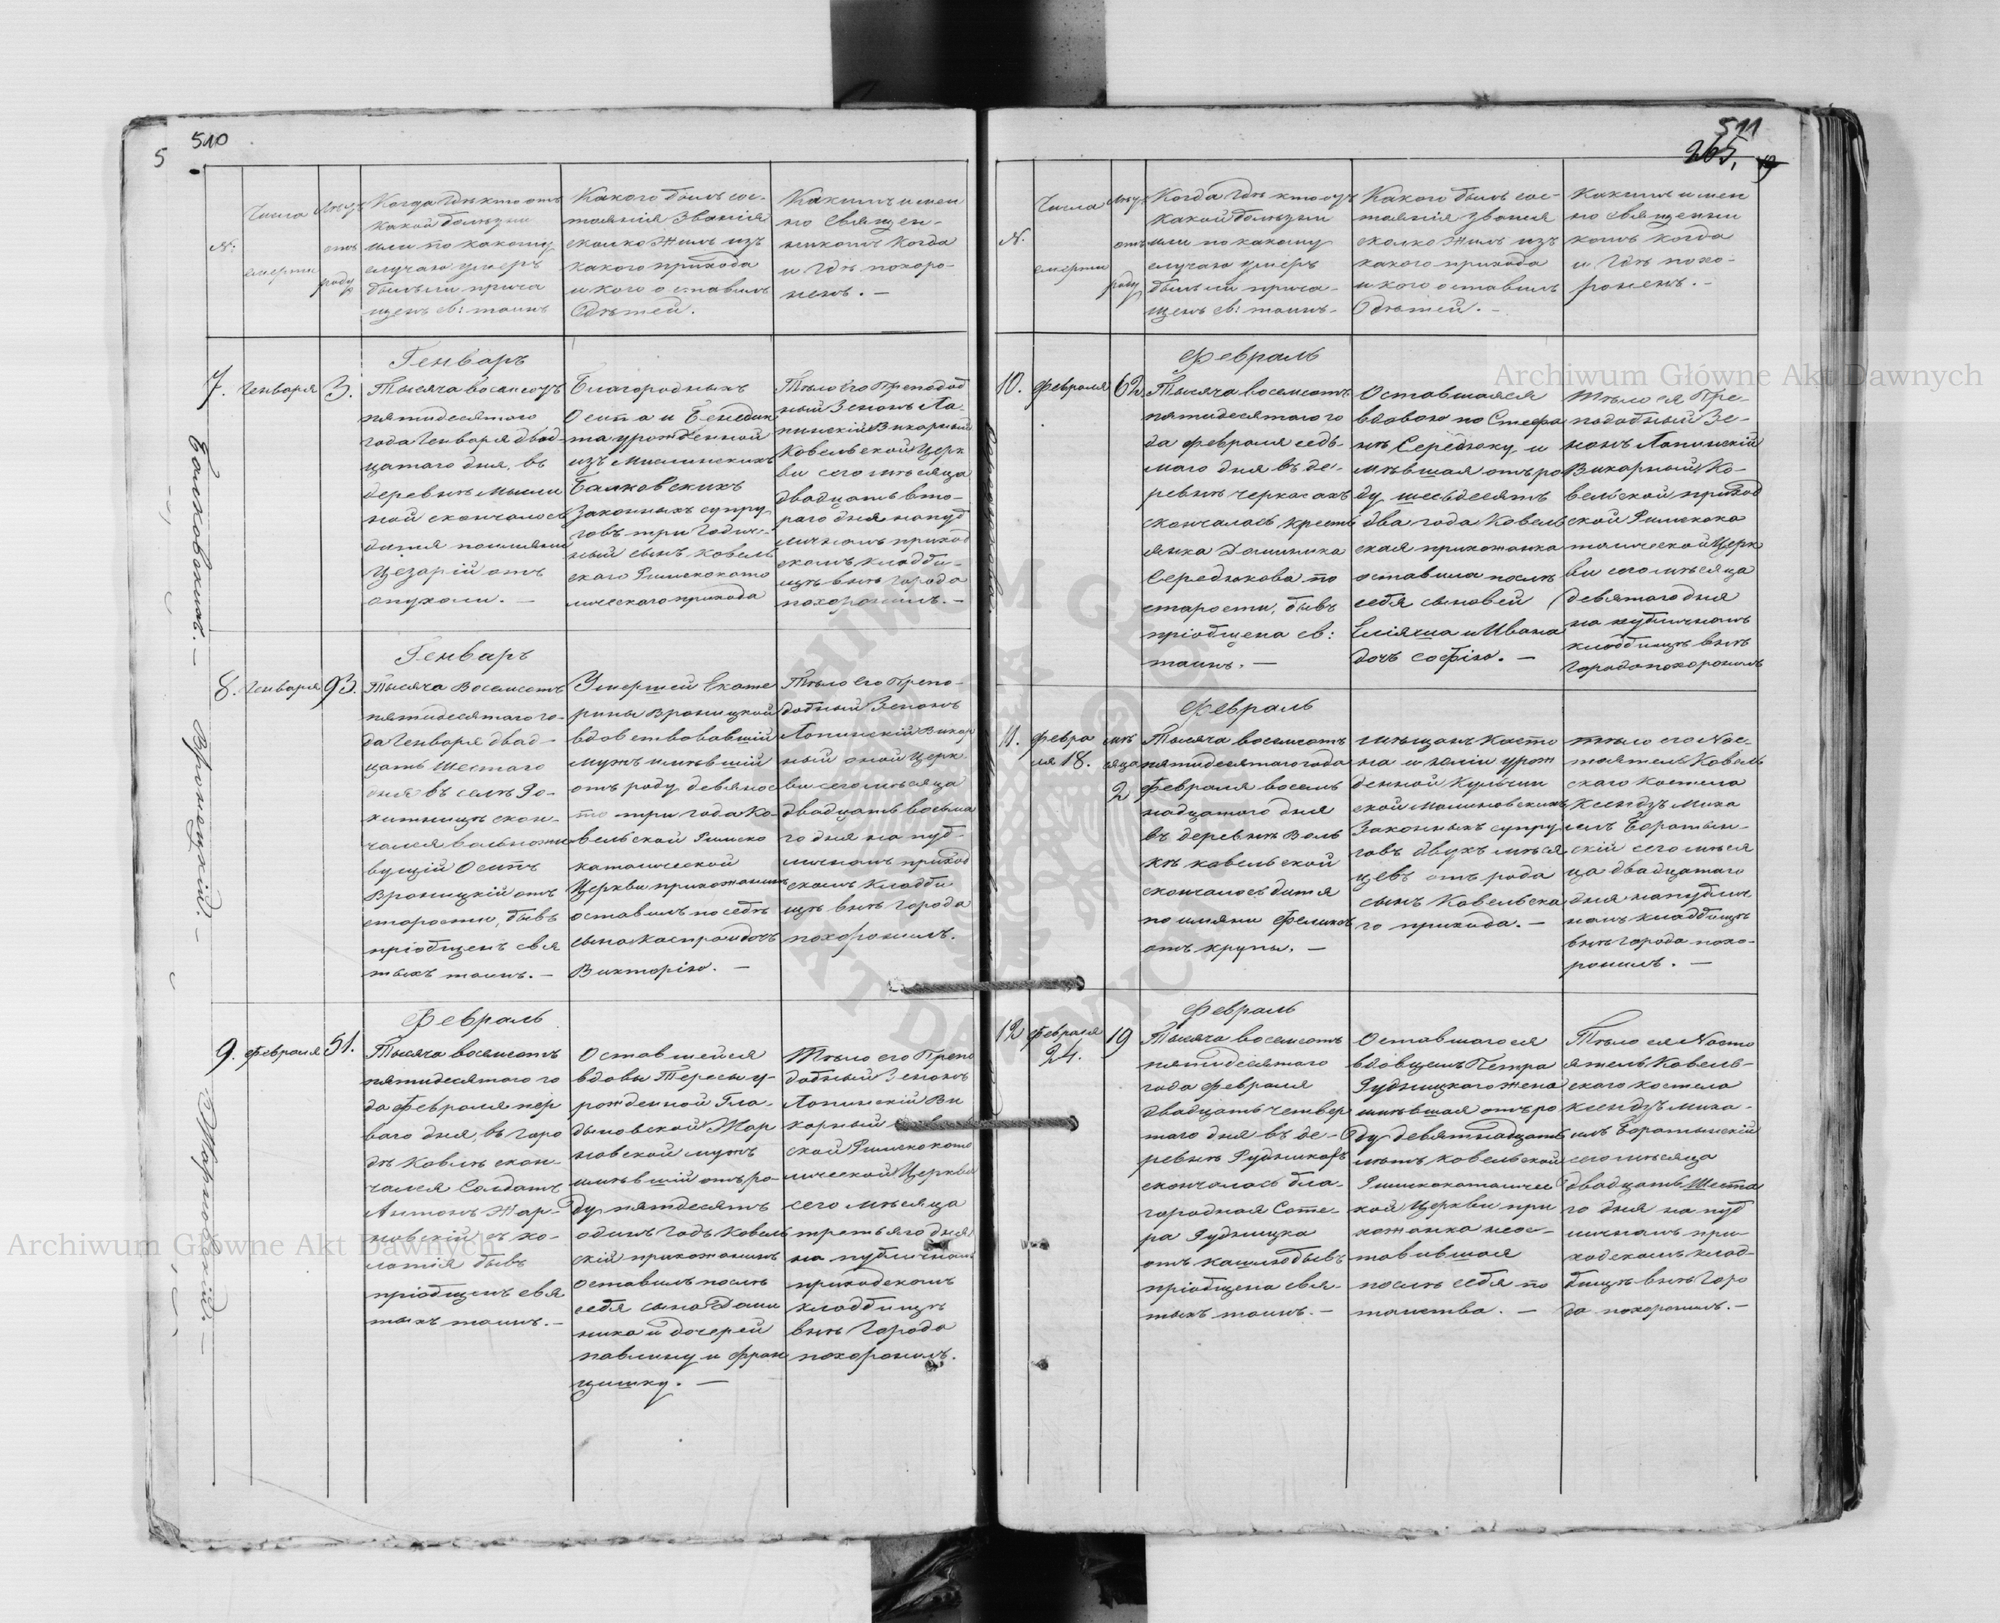 510
5
N:
Числа
смерти
Лѣтъ
отъ
роду
Когда гдѣ кто отъ
какой болѣзни
или по какому
случаю умеръ
былъ ли прича
щенъ св: таинъ
Какого былъ сос-
таянія званія
сколко жилъ изъ
какого прихода
и кого оставилъ
дѣтей.
Какимъ имен
но священ-
никомъ когда
и гдѣ похоро-
ненъ. —
Генварь
7.
Генваря
3.
Тысяча восемсотъ
пятидесятого
года Генваря двад
цатаго дня, въ
деревнѣ Мысли
ной скончалось
дитя по имяни
Цезарій отъ
опухоли. —
Благородныхъ
Осипа и Бенедик
та урожденной
изъ Мислинскихъ
Балковскихъ
законныхъ супру
говъ три годич-
ный сынъ Ковель
скаго Римскокато
лическаго прихода
Тѣло его Преподоб
ный Зенонъ Ла-
пинскій Викарный
Ковельской Церк
ви сего мѣсяца
двадцать вто-
раго дня на пуб
личномъ приход
скомъ кладби-
щѣ внѣ города
похоронилъ. —
Балковскій. —
Генварь
8.
Генваря
93.
Тысяча восемсотъ
пятидесятого го-
да Генваря двад-
цать шестаго
дня въ селѣ Го-
скон-
чался вольножи
вущій Осипъ
Вроницкій отъ
старости, бывъ
пріобщенъ свя
тыхъ таинъ. —
Умершей Екате
рины Вроницкой
вдовствовавшій
мужъ имѣвшій
отъ роду девянос
то три года Ко-
вельской Римско
католической
Церкви прихожанинъ
оставилъ по себѣ
сына Каспра и дочь
Викторію. —
Тѣло его Препо-
добный Зенонъ
Лапинскій Викар
ный оной Церк
ви сего мѣсяца
двадцать восьма
го дня на пуб-
личномъ приход
скомъ кладби
щѣ внѣ города
похоронилъ.
Вроницкій. —
Февраль
9.
Февраля
51.
Тысяча восемсотъ
пятидесятого го
да Февраля пер
ваго дня, въ горо
дѣ Ковлѣ скон-
чался Солдатъ
Антонъ Жар-
новскій съ ко-
лотія бывъ
пріобщенъ свя
тыхъ таинъ. —
Оставшейся
вдовы Тересы у-
рожденной Гла-
дыновской Жар
новской мужъ
имѣвшій отъ ро-
ду пятдесятъ
одинъ годъ Ковель
скій прихожанинъ
оставилъ послѣ
себя сына Доми
ника и дочерей
Павлину и Фран
цишку. —
Тѣло его Препо
добный Зенонъ
Лапинскій Ви
карный
ской Римскокато
лической Церкви
сего мѣсяца
третьяго дня
на публичномъ
приходскомъ
кладбищѣ
внѣ города
похоронилъ.
Жарновскій. —
511
265.
N.
Числа
смерти
Лѣт
отъ
роду
Когда гдѣ кто отъ
какой болѣзни
или по какому
случаю умеръ
былъ ли прича-
щенъ св: таинъ-
Какого былъ сос-
таянія званія
сколко жилъ изъ
какого прихода
и кого оставилъ
дѣтей. —
Какимъ имен
но священни
комъ когда
и гдѣ похо-
роненъ. —
Февраль
10.
Февраля
62
Тысяча восемсотъ
пятидесятаго го
да Февраля седь
маго дня въ де-
ревнѣ Черкасахъ
скончалась кресть
янка Доминика
Середюкова по
старости, бывъ
пріобщена св:
таинъ. —
Оставшаяся
вдовою по Стефа
нѣ Середюку и
имѣвшая отъ ро
ду шесьдесятъ
два года Ковель
ская прихожанка
оставила послѣ
себя сыновей
Еліяша и Ивана
дочь Софію. —
Тѣло ея Пре-
подобный Зе-
нонъ Лапинскій
Викарный Ко-
вельской приход
ской Римскока
толической Церк
ви сего мѣсяца
девятаго дня
на публичномъ
кладбищѣ внѣ
города похоронилъ
Февраль
11.
Февра
ля 18.
мѣ
сяца
2
Тысяча восемсотъ
пятидесятаго года
Февраля восемь
надцатаго дня
въ деревнѣ Воль
кѣ Ковельской
скончалось дитя
по имяни Феликсъ
отъ крупы. —
Мѣщанъ Касто
на и Юліи урож
денной Кульчин
ской Малиновскихъ
законныхъ супру
говъ двухъ мѣся
цевъ отъ рода
сынъ Ковельска
го прихода. —
Тѣло его Нас-
тоятель Ковель
скаго Костела
Ксендзъ Миха
илъ Боратын-
скій сего мѣся
ца двадцатаго
дня на публич
номъ кладбищѣ
внѣ города похо-
ронилъ. —
Февраль
12
Февраля
24.
19
Тысяча восемсотъ
пятидесятаго
года Февраля
двадцать четвер
таго дня въ де-
ревнѣ Рудникахъ
скончалась бла-
городная Соте-
ра Рудницка
отъ кашлю бывъ
пріобщена свя-
тыхъ таинъ. —
Оставшагося
вдовцемъ Петра
Рудницкаго жена
имѣвшая отъ ро
ду девятнадцать
лѣтъ Ковельской
Римскокатоличес
кой Церкви при
хожанка неос-
тавившая
послѣ себя по
томства. —
Тѣло ея Насто
ятель Ковель-
скаго Костела
Ксендзъ Миха-
илъ Боратынскій
сего мѣсяца
двадцать шеста
го дня на пуб
личномъ при-
ходскомъ клад-
бищѣ внѣ горо
да похоронилъ. —
Archiwum Główne Akt Dawnych
Archiwum Główne Akt Dawnych